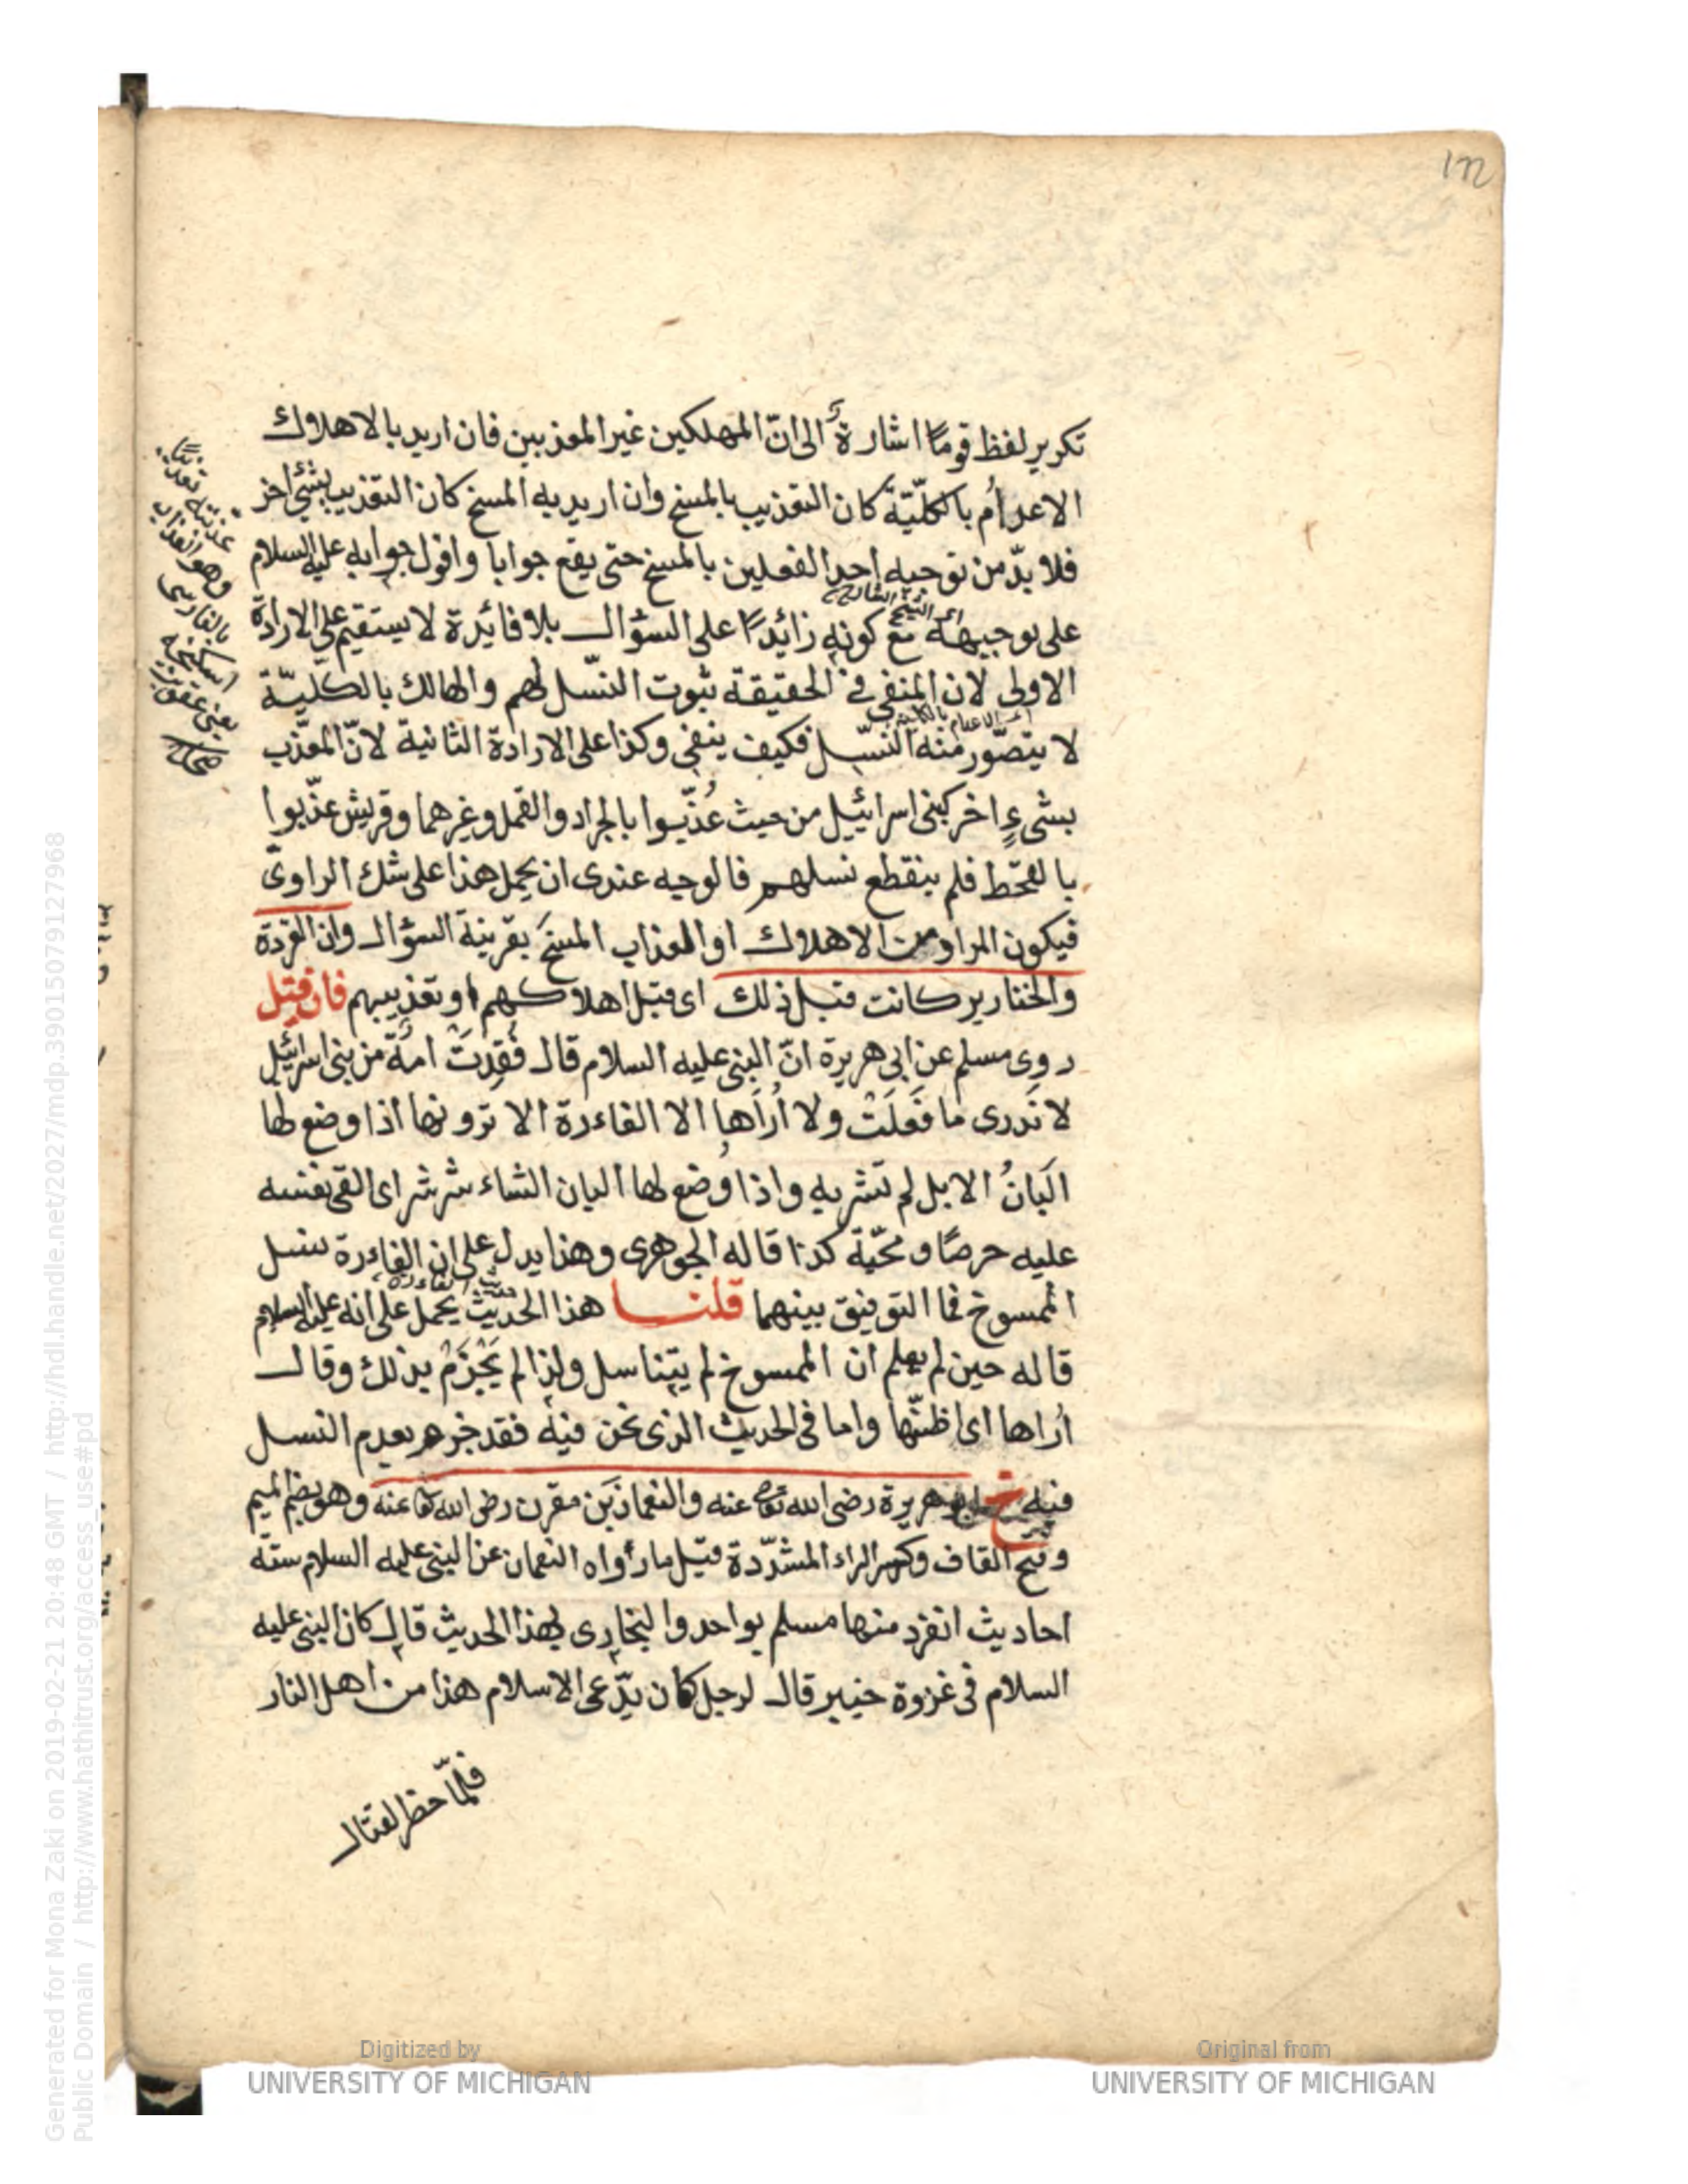 ١٢٢
تكرير لفظ قومًا اشارةً الى انّ المهلكين غير المعذبين فان اريد بالاهلاك
الاعدامُ بالكلّيّة كان التعذيب بالمسخ وان اريد به المسخ كان التعذيب بشئ اخر
فلا بدّ من توجيه احد الفعلين بالمسخ حتى يقع جوابا واقول جوابه عليه السلام
اى الشيخ الشارح
على توجيهه مع كونه زائدًا على السؤال بلا فائدة لا يستقيم على الارادة
الاولى لان المنفى فى الحقيقة ثبوت النّسل لهم والهالك بالكليّة
اى الاعدام بالكلية
لا يتصوّر منه النّسل فكيف ينفى وكذا على الارادة الثانية لانّ المعذّب
بشىءٍ اخر كبنى اسرائيل من حيث عُذّبوا بالجراد والقمل وغرهما وقريش عذّبوا
بالقحط فلم ينقطع نسلهم فالوجه عندى ان يحمل هذا على شك الراوى
فيكون المراد من الاهلاك او العذاب المسخَ بقرينة السؤال وان القردة
والخنازير كانت قبل ذلك اى قبل اهلاكهم او تعذيبهم فان قيل
روى مسلم عن ابى هريرة انّ النبى عليه السلام قال فُقِدَتْ امةٌ من بنى اسرائيل
لا نَدرى ما فَعَلَتْ ولا اُرَاها الا الفاءرة الا ترونها اذا وضع لها
اَلبانُ الابل لم تشربه واذا وُضع لها البان الشاء شرشر اى القى نفسه
عليه حرصًا ومحبّة كذا قاله الجوهرى وهذا يدل على ان الفاءرة نسل
حديث الفاءرة
الممسوخ فما التوفيق بينهما قلنا هذا الحديث يحمل على انه عليه السلام
قاله حين لم يعلم ان الممسوخ لم يتناسل ولذا لم يَجْزَمْ بذلك وقال
اُراها اى اظنّها واما فى الحديث الذى نحن فيه فقد جزم بعدم النسل
فيه خ ابو هريرة رضى الله تعا عنه والنعمان بَن مقرن رضى الله تعا عنه وهو بضم الميم
وفتح القاف وكسر الراء المشدّدة قيل ما رواه النعمان عن النبى عليه السلام ستّة
احاديث انفرد منها مسلم بواحد والبخارى لهذا الحديث قال كان النبى عليه
السلام فى غزوة خيبر قال لرجل كان يدّعى الاسلام هذا من اهل النار
فلمّا حظر لقتال
عذبته تعذيبًا
وهو العذاب
بالفارسى
اشكنجه
يعنى عقوبت
صحاح
Generated for Mona Zaki on 2019-02-21 20:48 GMT / http://hdl.handle.net/2027/mdp.39015079127968
Public Domain / http://www.hathitrust.org/access_use#pd
Digitized by
UNIVERSITY OF MICHIGAN
Original from
UNIVERSITY OF MICHIGAN